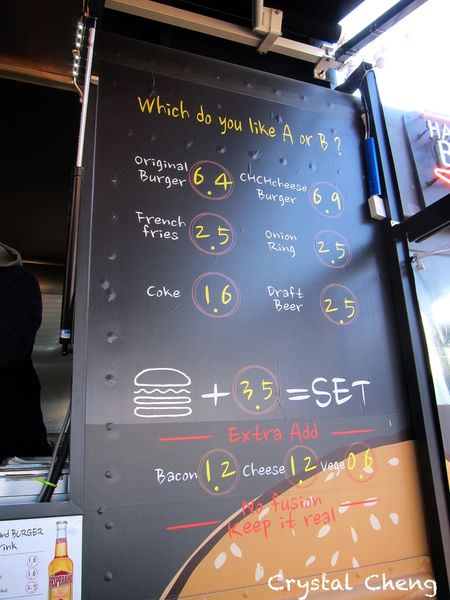 Which do you like A or B ?
Original Burger 6.4
CHCHcheese Burger 6.9
French fries 2.5
Onion Ring 2.5
Coke 1.6
Draft Beer 2.5
+ 3.5 = SET
Extra Add
Bacon 1.2 Cheese 1.2 Vege 0.6
No fusion
Keep it real
BURGER
1.6
1.6
2.5
HA
B
Crystal Cheng